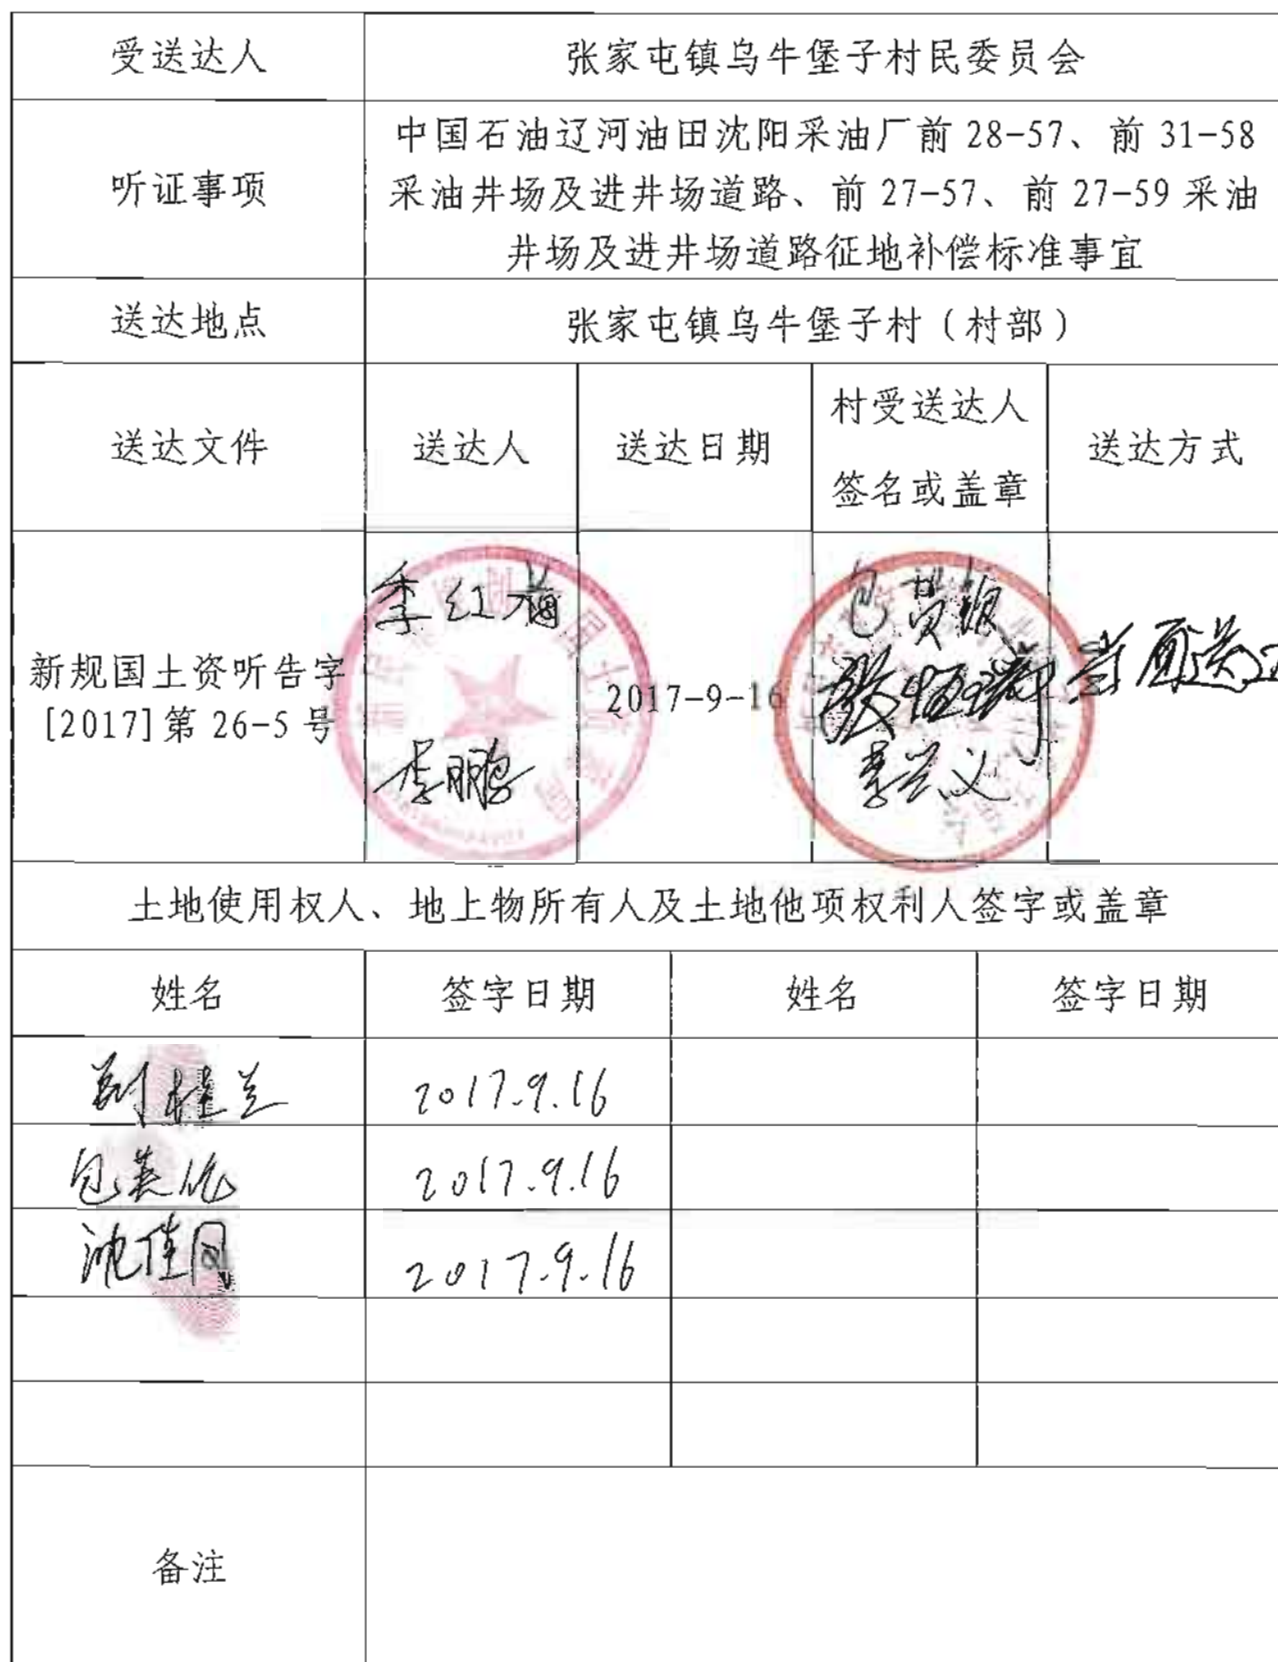 受送达人
张家屯镇乌牛堡子村民委员会
听证事项
中国石油辽河油田沈阳采油厂前 28-57、前 31-58
采油井场及进井场道路、前 27-57、前 27-59 采油
井场及进井场道路征地补偿标准事宜
送达地点
张家屯镇乌牛堡子村（村部）
送达文件
送达人
送达日期
村受送达人
签名或盖章
送达方式
新规国土资听告字
[2017]第 26-5 号
季红梅
李鹏
2017-9-16
李兴义
土地使用权人、地上物所有人及土地他项权利人签字或盖章
姓名
签字日期
姓名
签字日期
2017.9.16
2017.9.16
沈佳凤
2017.9.16
备注